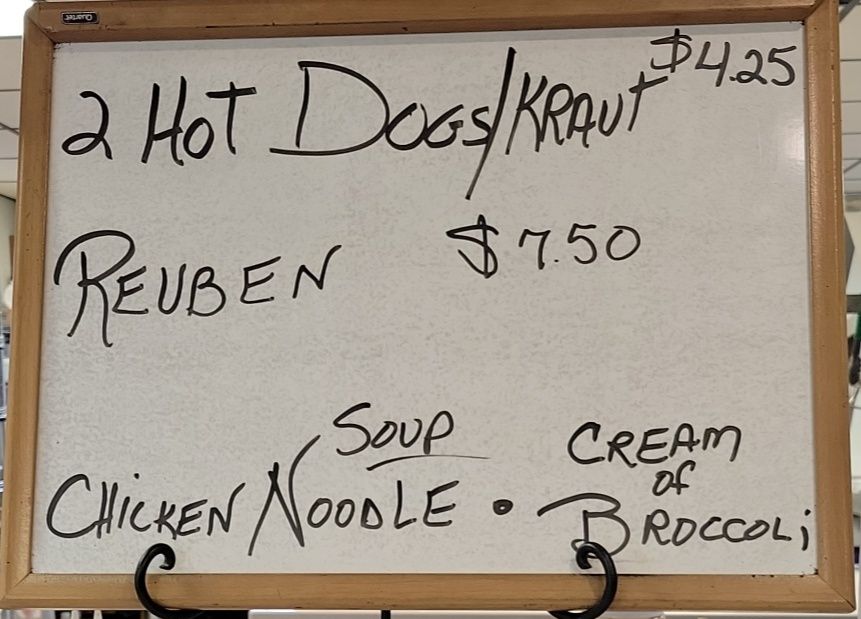 Quartet
2 HOT DOGS/KRAUT $4.25
REUBEN $7.50
SOUP
CHICKEN NOODLE • CREAM of BROCCOLi